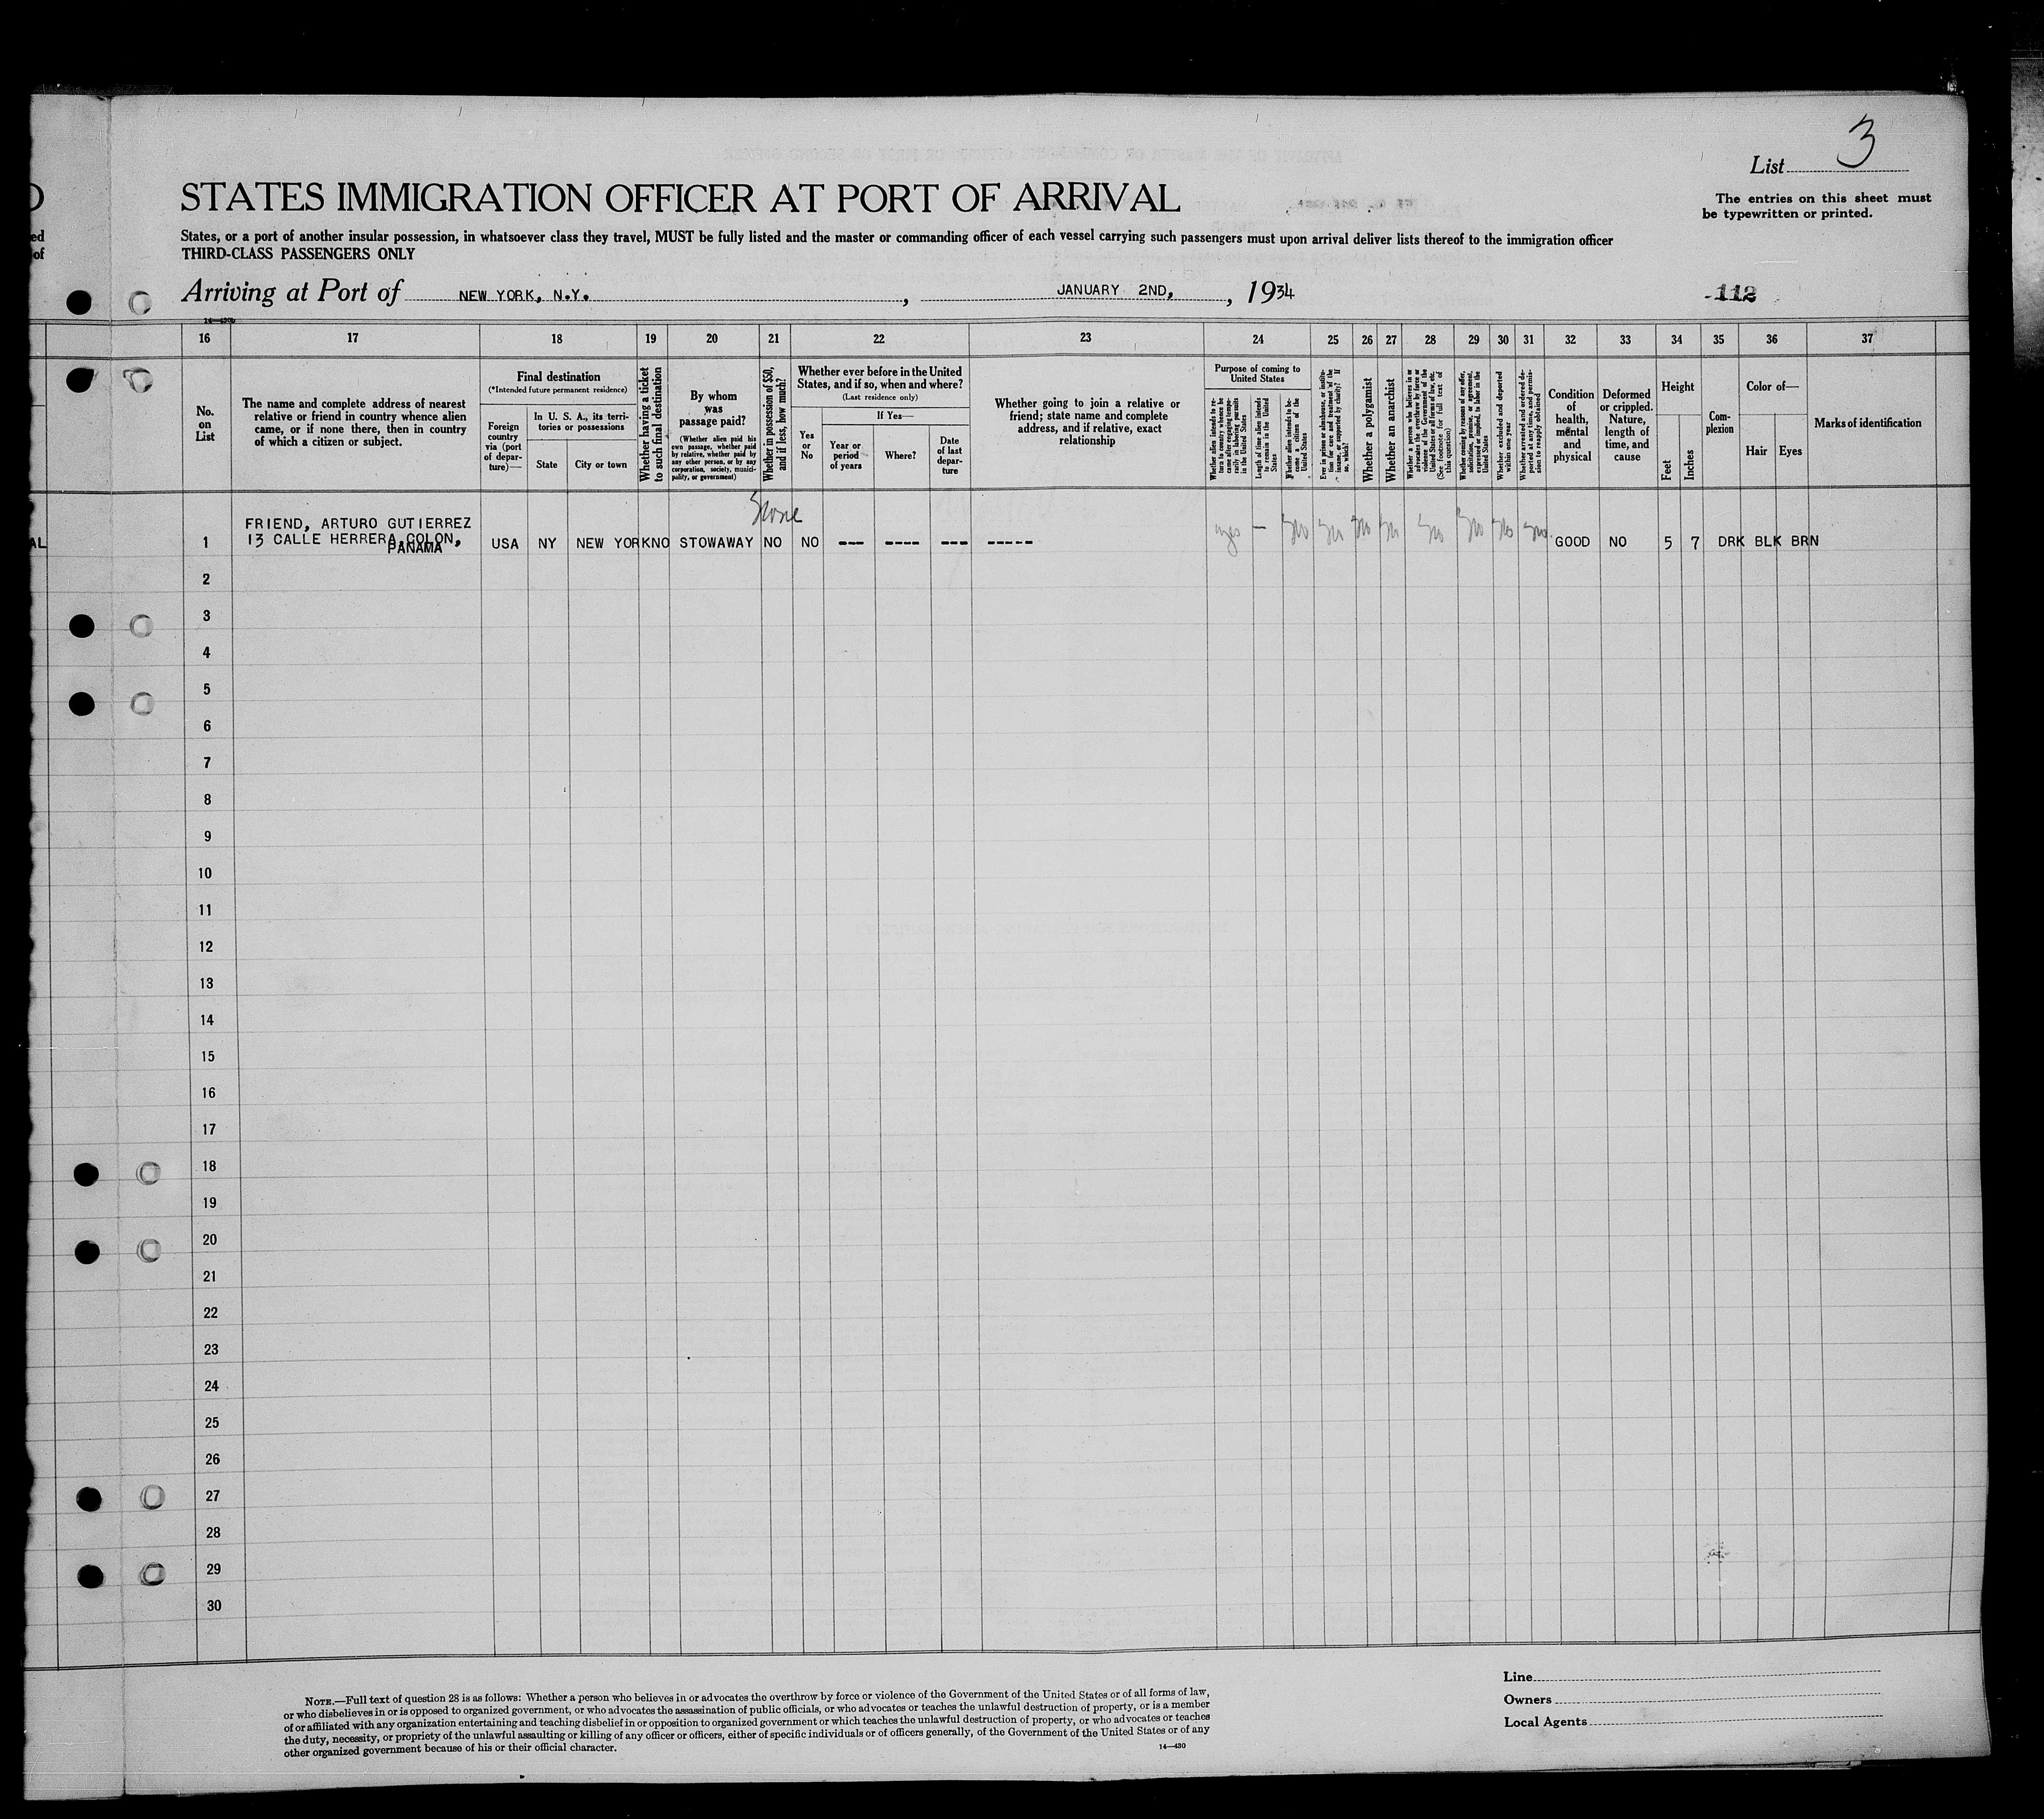 List 3
The entries on this sheet must
be typewritten or printed.
STATES IMMIGRATION OFFICER AT PORT OF ARRIVAL
States, or a port of another insular possession, in whatsoever class they travel, MUST be fully listed and the master or commanding officer of each vessel carrying such passengers must upon arrival deliver lists thereof to the immigration officer
THIRD-CLASS PASSENGERS ONLY
ed
of
Arriving at Port of NEW YORK, N.Y. , JANUARY 2ND, , 1934
112
16 17 18 19 20 21 22 23 24 25 26 27 28 29 30 31 32 33 34 35 36 37
No.
on
List
The name and complete address of nearest
relative or friend in country whence alien
came, or if none there, then in country
of which a citizen or subject.
Final destination
(*Intended future permanent residence)
Foreign
country
via (port
of depar-
ture)—
In U. S. A., its terri-
tories or possessions
State
City or town
Whether having a ticket
to such final destination
By whom
was
passage paid?
(Whether alien paid his
own passage, whether paid
by relative, whether paid by
any other person, or by any
corporation, society, munici-
pality, or government)
Whether in possession of $50,
and if less, how much?
Whether ever before in the United
States, and if so, when and where?
(Last residence only)
Yes
or
No
If Yes—
Year or
period
of years
Where?
Date
of last
depar-
ture
Whether going to join a relative or
friend; state name and complete
address, and if relative, exact
relationship
Purpose of coming to
United States
Whether alien intends to re-
turn to country whence he
came after engaging tempo-
rarily in laboring pursuits
in the United States
Length of time alien intends
to remain in the United
States
Whether alien intends to be-
come a citizen of the
United States
Ever in prison or almshouse, or institu-
tion for care and treatment of the
insane, or supported by charity? If
so, which?
Whether a polygamist
Whether an anarchist
Whether a person who believes in or
advocates the overthrow by force or
violence of the Government of the
United States or all forms of law, etc.
(See footnote for full text of
this question)
Whether coming by reason of any offer,
solicitation, promise, or agreement,
expressed or implied, to labor in the
United States
Whether excluded and deported
within one year
Whether arrested and ordered de-
ported at any time, and permis-
sion to reapply obtained
Condition
of
health,
mental
and
physical
Deformed
or crippled.
Nature,
length of
time, and
cause
Height
Feet
Inches
Com-
plexion
Color of—
Hair
Eyes
Marks of identification
None
FRIEND, ARTURO GUTIERREZ
AL 1 13 CALLE HERRERA COLON, USA NY NEW YORK NO STOWAWAY NO NO --- ---- --- ----- yes — No No No No No No No No GOOD NO 5 7 DRK BLK BRN
PANAMA
2
3
4
5
6
7
8
9
10
11
12
13
14
15
16
17
18
19
20
21
22
23
24
25
26
27
28
29
30
Line
Owners
Local Agents
NOTE.—Full text of question 28 is as follows: Whether a person who believes in or advocates the overthrow by force or violence of the Government of the United States or of all forms of law,
or who disbelieves in or is opposed to organized government, or who advocates the assassination of public officials, or who advocates or teaches the unlawful destruction of property, or is a member
of or affiliated with any organization entertaining and teaching disbelief in or opposition to organized government or which teaches the unlawful destruction of property, or who advocates or teaches
the duty, necessity, or propriety of the unlawful assaulting or killing of any officer or officers, either of specific individuals or of officers generally, of the Government of the United States or of any
other organized government because of his or their official character.
14—430